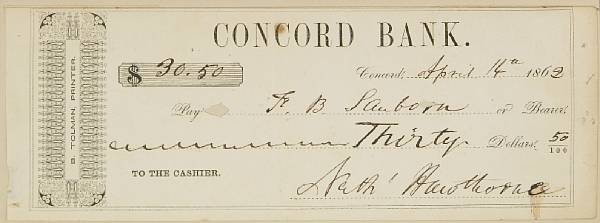 CONCORD BANK.
$ 30.50 Concord, April 14th 1862
Pay F. B. Sanborn or Bearer
Thirty Dollars, 50/100
TO THE CASHIER.
Nathl Hawthorne
B. TOLMAN, PRINTER.